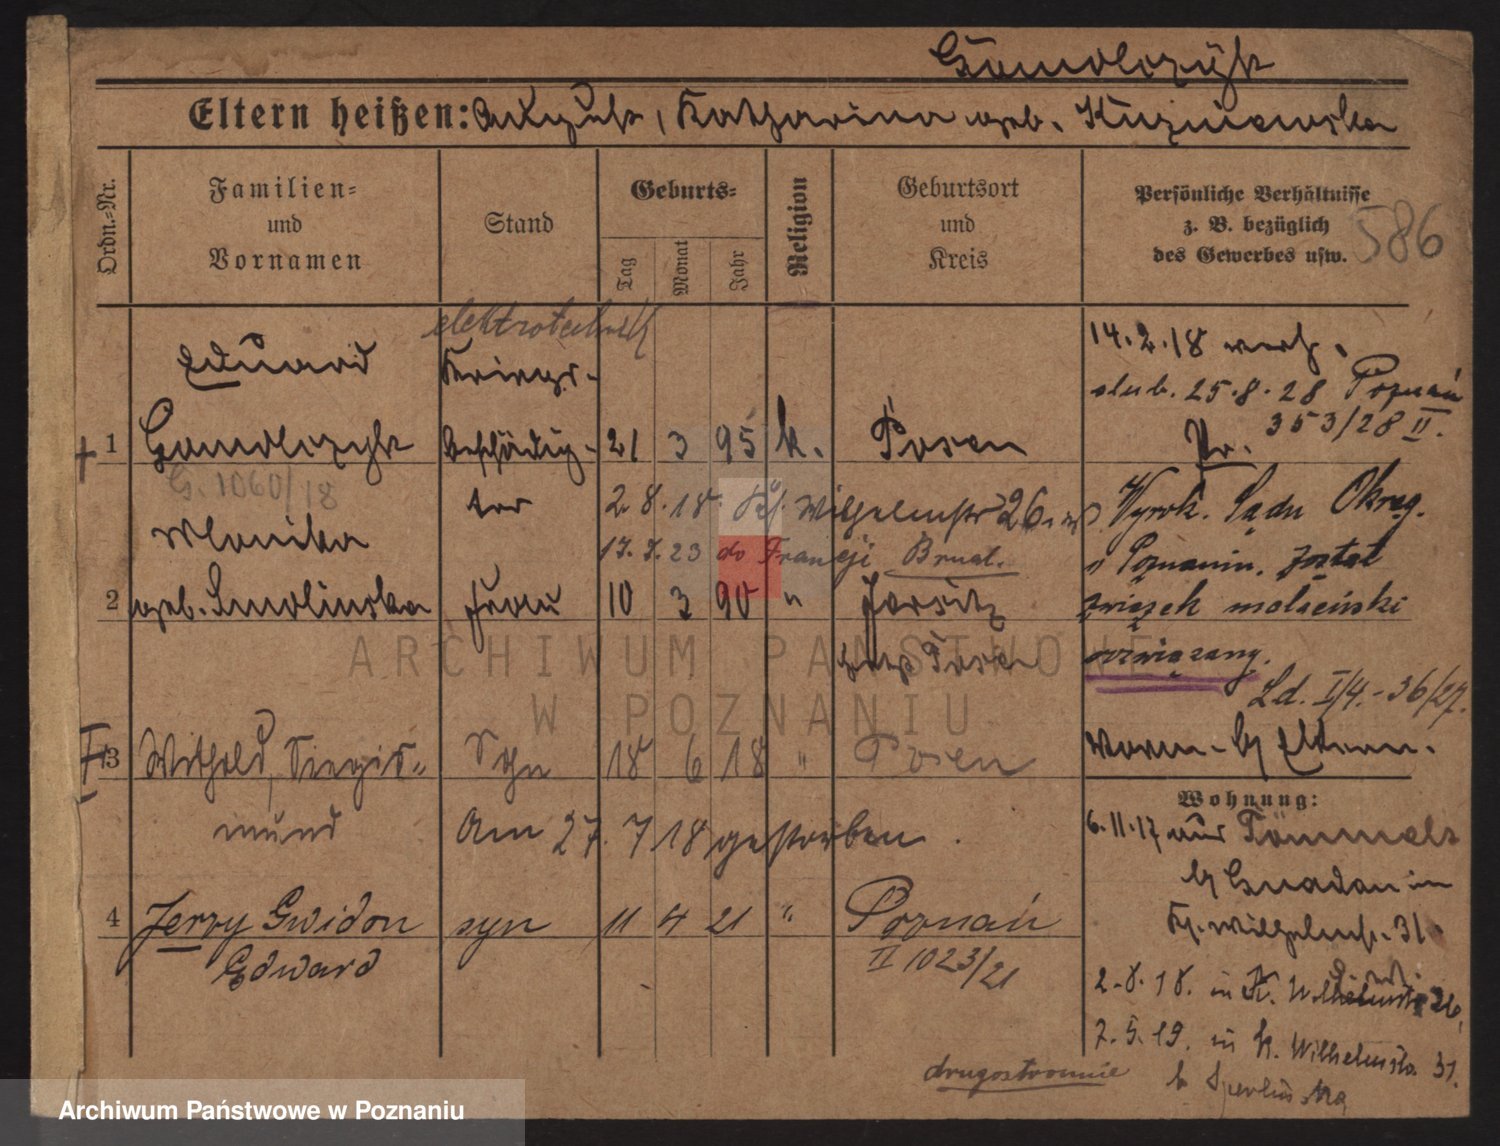 Gomolczyk
Eltern heißen: August, Katharina geb. Kuzniewska
Ordn.-Nr.
Familien- und Vornamen
Stand
Geburts-
Tag
Monat
Jahr
Religion
Geburtsort und Kreis
Persönliche Verhältnisse z. B. bezüglich des Gewerbes usw.
586
elektrotechnik
Eduard
Kriegs-
14.2.18 verh.
slub. 25.8.28 Poznań
353/28 II.
1 Gomolczyk beschädig- 21 3 95 k. Posen
Pr.
G. 1060/18
ter
2.8.18. Kl. Wilhelmstr 26
Wyrok. Sądu Okręg.
Monika
17.7.23 do Francji Bruat.
w Poznaniu. został
2 geb. Smolinska Frau 10 3 90 " Jersitz
związek małżeński
Posen
rozwiązany.
Ld. I/4.-36/27.
3 Withold, Siegis- Sohn 18 6 18 " Posen
Eltern.
mund
Am 27. 7 18 gestorben.
Wohnung:
6.11.17 aus
4 Jerzy Gwidon syn 11 4 21 " Poznań
Kl. Wilhelmstr. 31
Edward
II 1023/21
2.8.18. in K. Wilhelmstr 26,
7.5.19. in K. Wilhelmstr. 31.
drugostronnie
ARCHIWUM PAŃSTWOWE
W POZNANIU
Archiwum Państwowe w Poznaniu